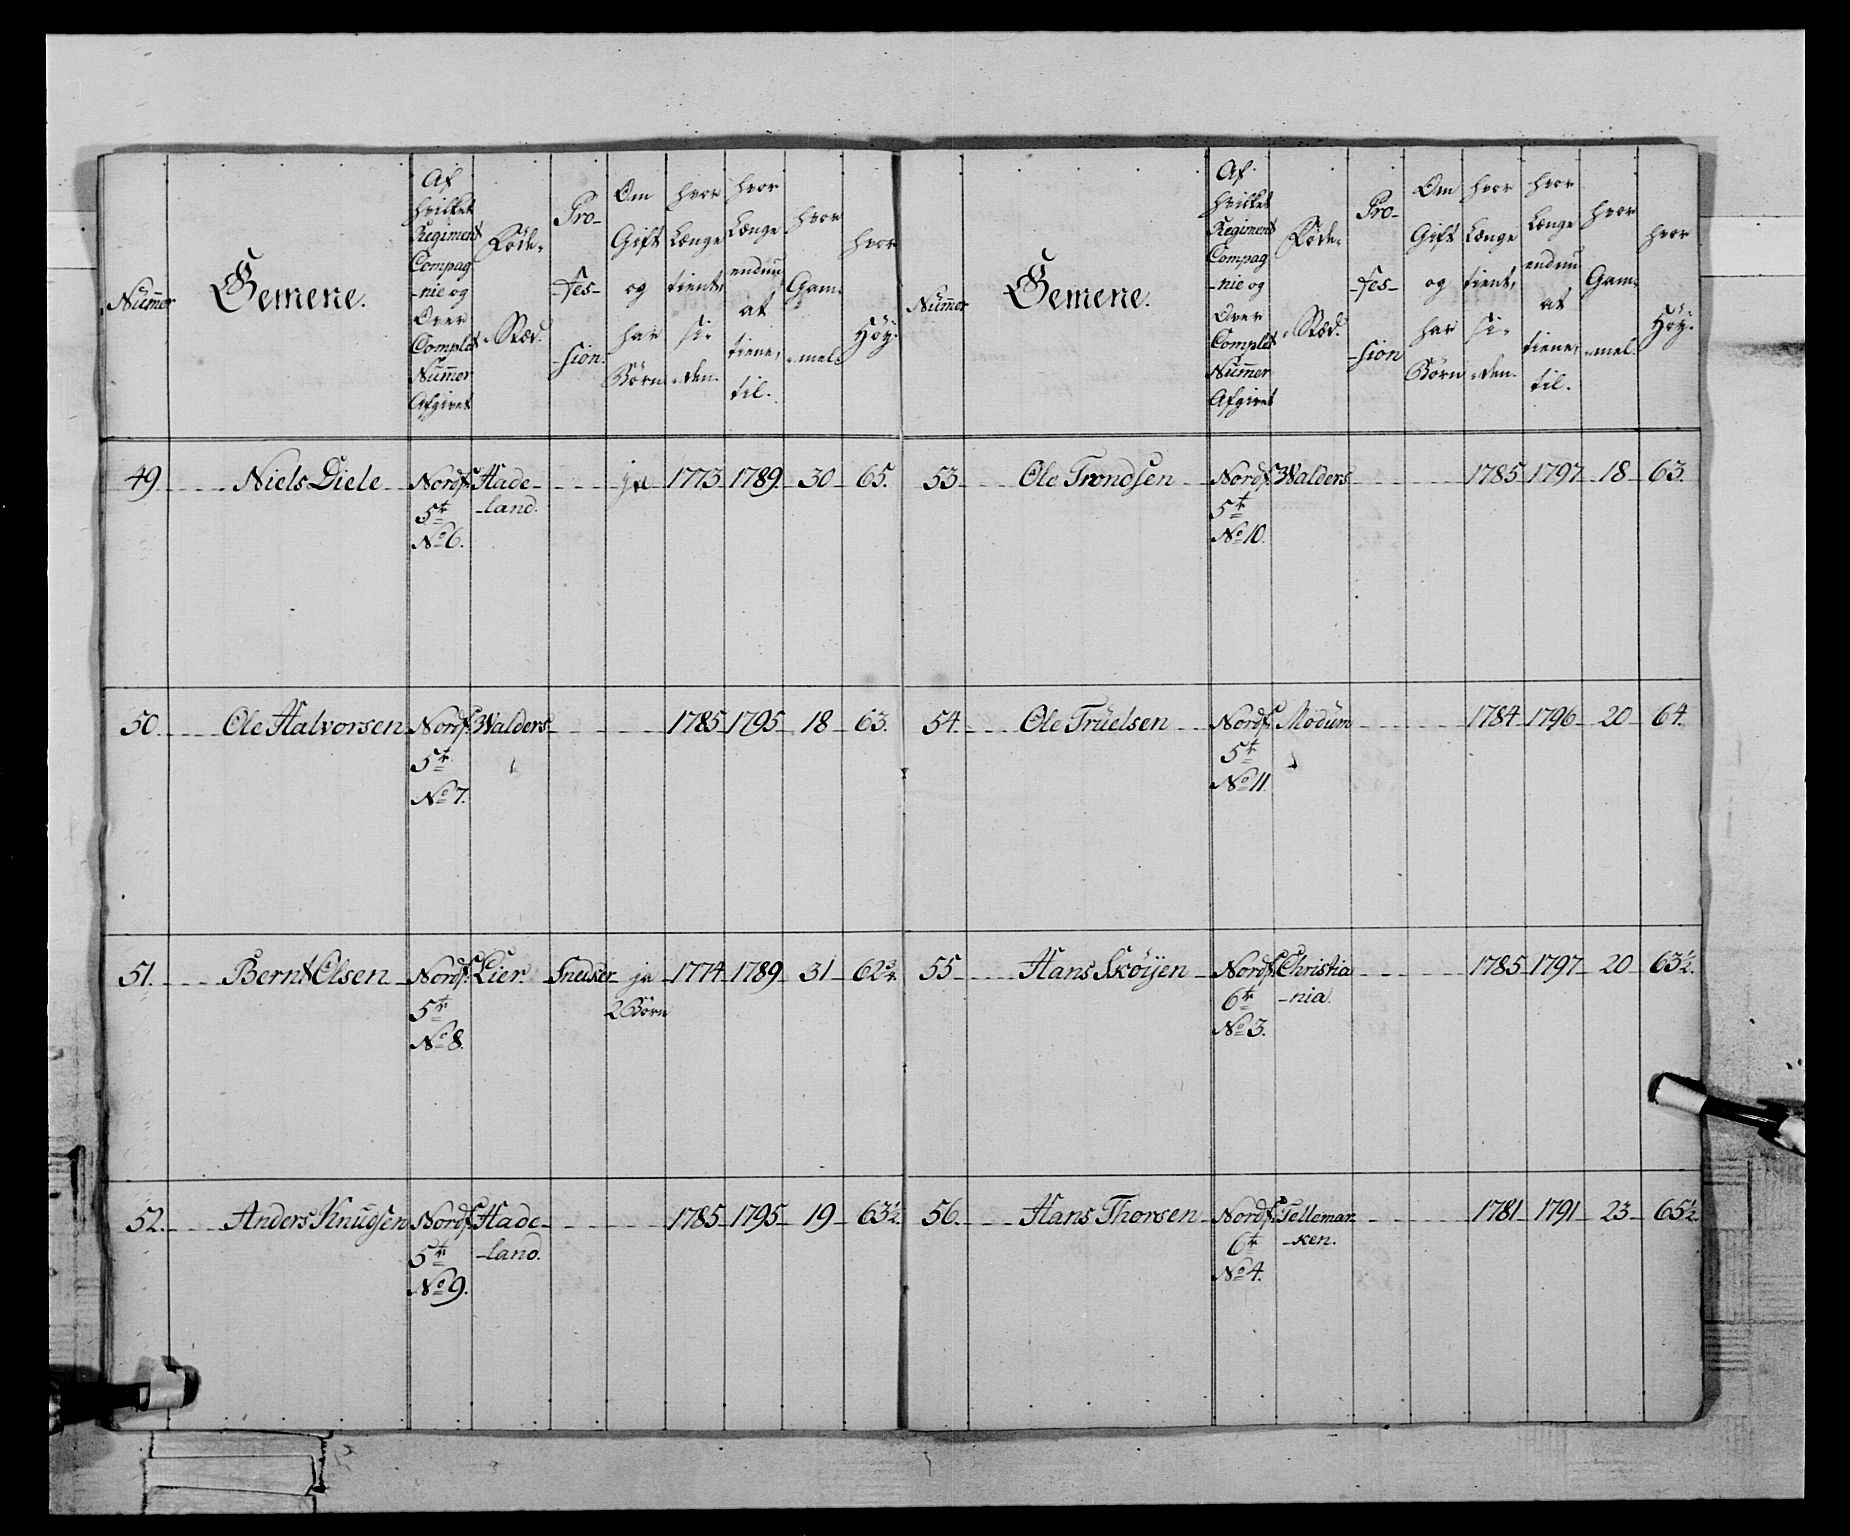 Nummer
Gemene.
Af
hvilket
Regiment
Compag
-nie og
Over
Complet
Nummer
Afgivet
Føde-
-Stæd.
Pro-
-fes-
-sion.
Om
Gift
og
har
Børn
hvor
Længe
tient,
si-
-den.
hvor
Længe
endnu
at
tiene,
til.
hvor
Gam-
-mel.
hvor
Høy.
49. Niels Diele Nordf. Hade- ja 1773 1789 30 65.
5te -land.
No 6.
50. Ole Halvorsen Nordf. Walders 1785 1795 18 63.
5te
No 7.
51. Bernt Olsen Nordf. Lier. Sneder ja 1774 1789 31 62¾
5te 2 Børn
No 8.
52. Anders Knudsen Nordf. Hade- 1785 1795 19 63½
5te -land.
No 9.
Nummer
Gemene.
Af
hvilket
Regiment
Compag
-nie og
Over
Complet
Nummer
Afgivet
Føde-
-Stæd.
Pro-
-fes-
-sion
Om
Gift
og
har
Børn
hvor
Længe
tient,
si-
-den.
hvor
Længe
endnu
at
tiene,
til.
hvor
Gam-
-mel.
hvor
Høy.
53. Ole Trondsen Nordf. Walders 1785 1797 18 63.
5te
No 10.
54. Ole Truelsen Nordf. Modum 1784 1796 20 64.
5te
No 11.
55 Hans Skøyen Nordf. Christia 1785 1797 20 63½.
6te -nia.
No 3.
56. Hans Thorsen Nordf. Tellemar- 1781 1791 23 65½
6te -ken.
No 4.